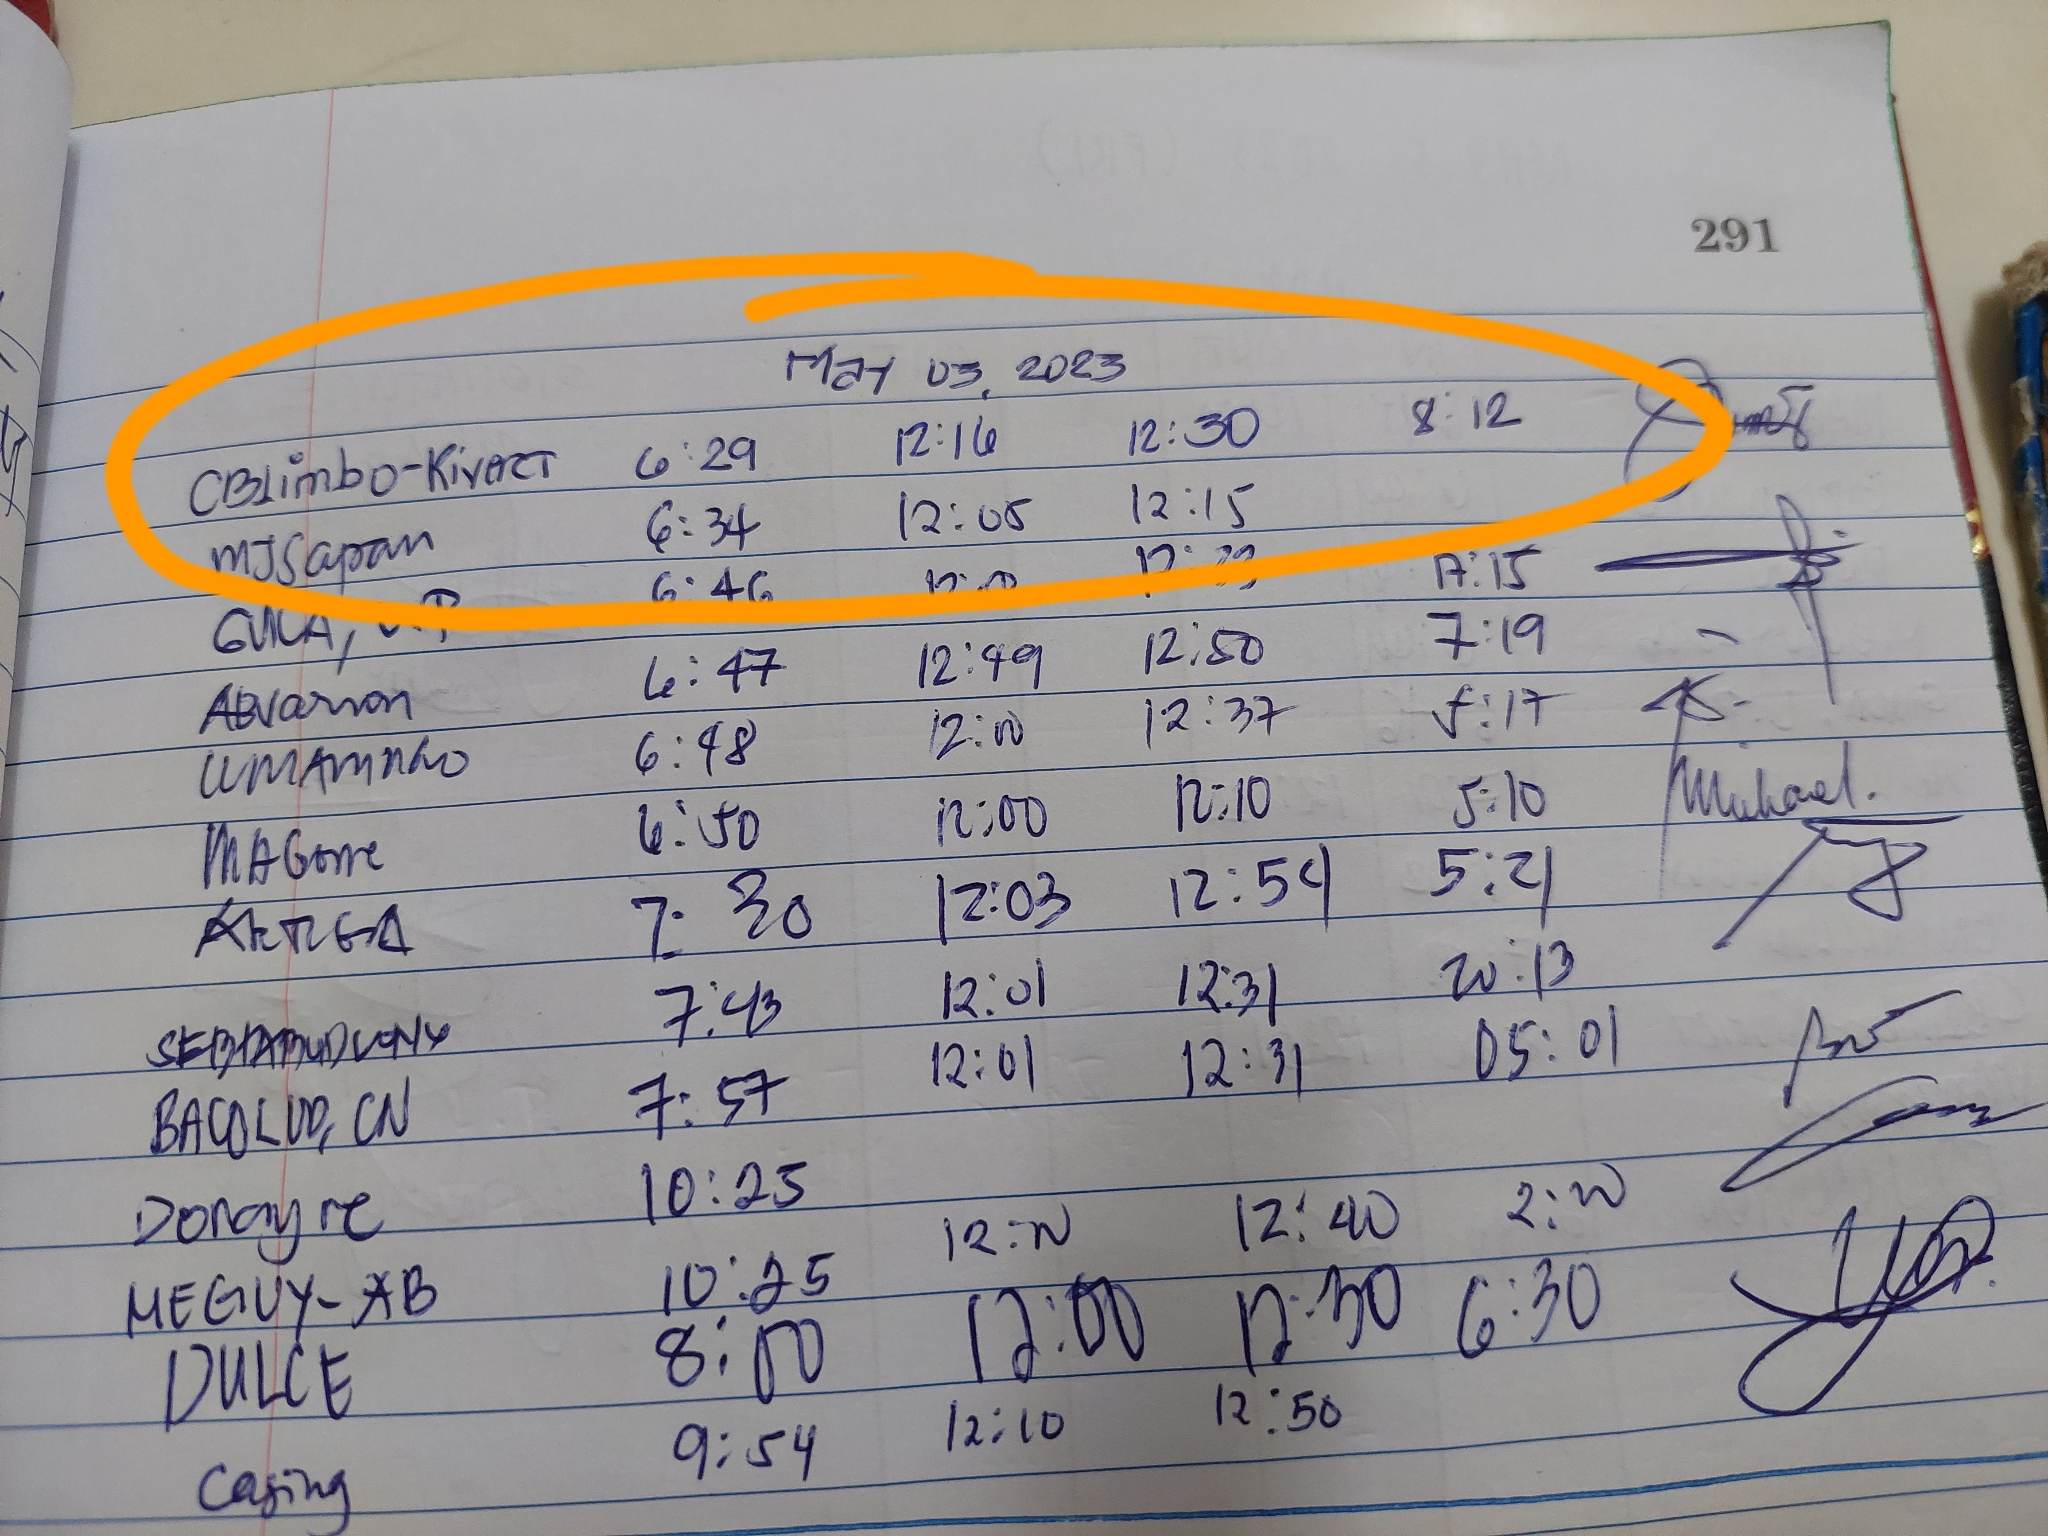 291
May 03, 2023
CBLimbo-Kivact 6:29 12:16 12:30 8:12
MJSapan 6:34 12:05 12:15
GULA, 6:46 17:15
6:47 12:49 12:50 7:19
6:48 12:00 12:37 5:17
MAGome 6:50 12:00 12:10 5:10 Michael.
ARTEGA 7:30 12:03 12:54 5:21
7:43 12:01 12:31 20:13
BACOLOD, CN 7:57 12:01 12:31 05:01
Donayre 10:25
MEGUY-AB 10:25 12:00 12:40 2:00
DULCE 8:00 12:00 12:30 6:30
Casing 9:54 12:10 12:50